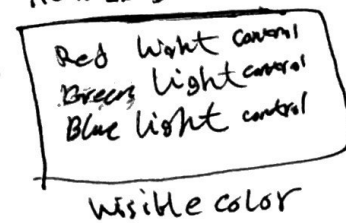 Red Light control
Green Light control
Blue light control
Visible color